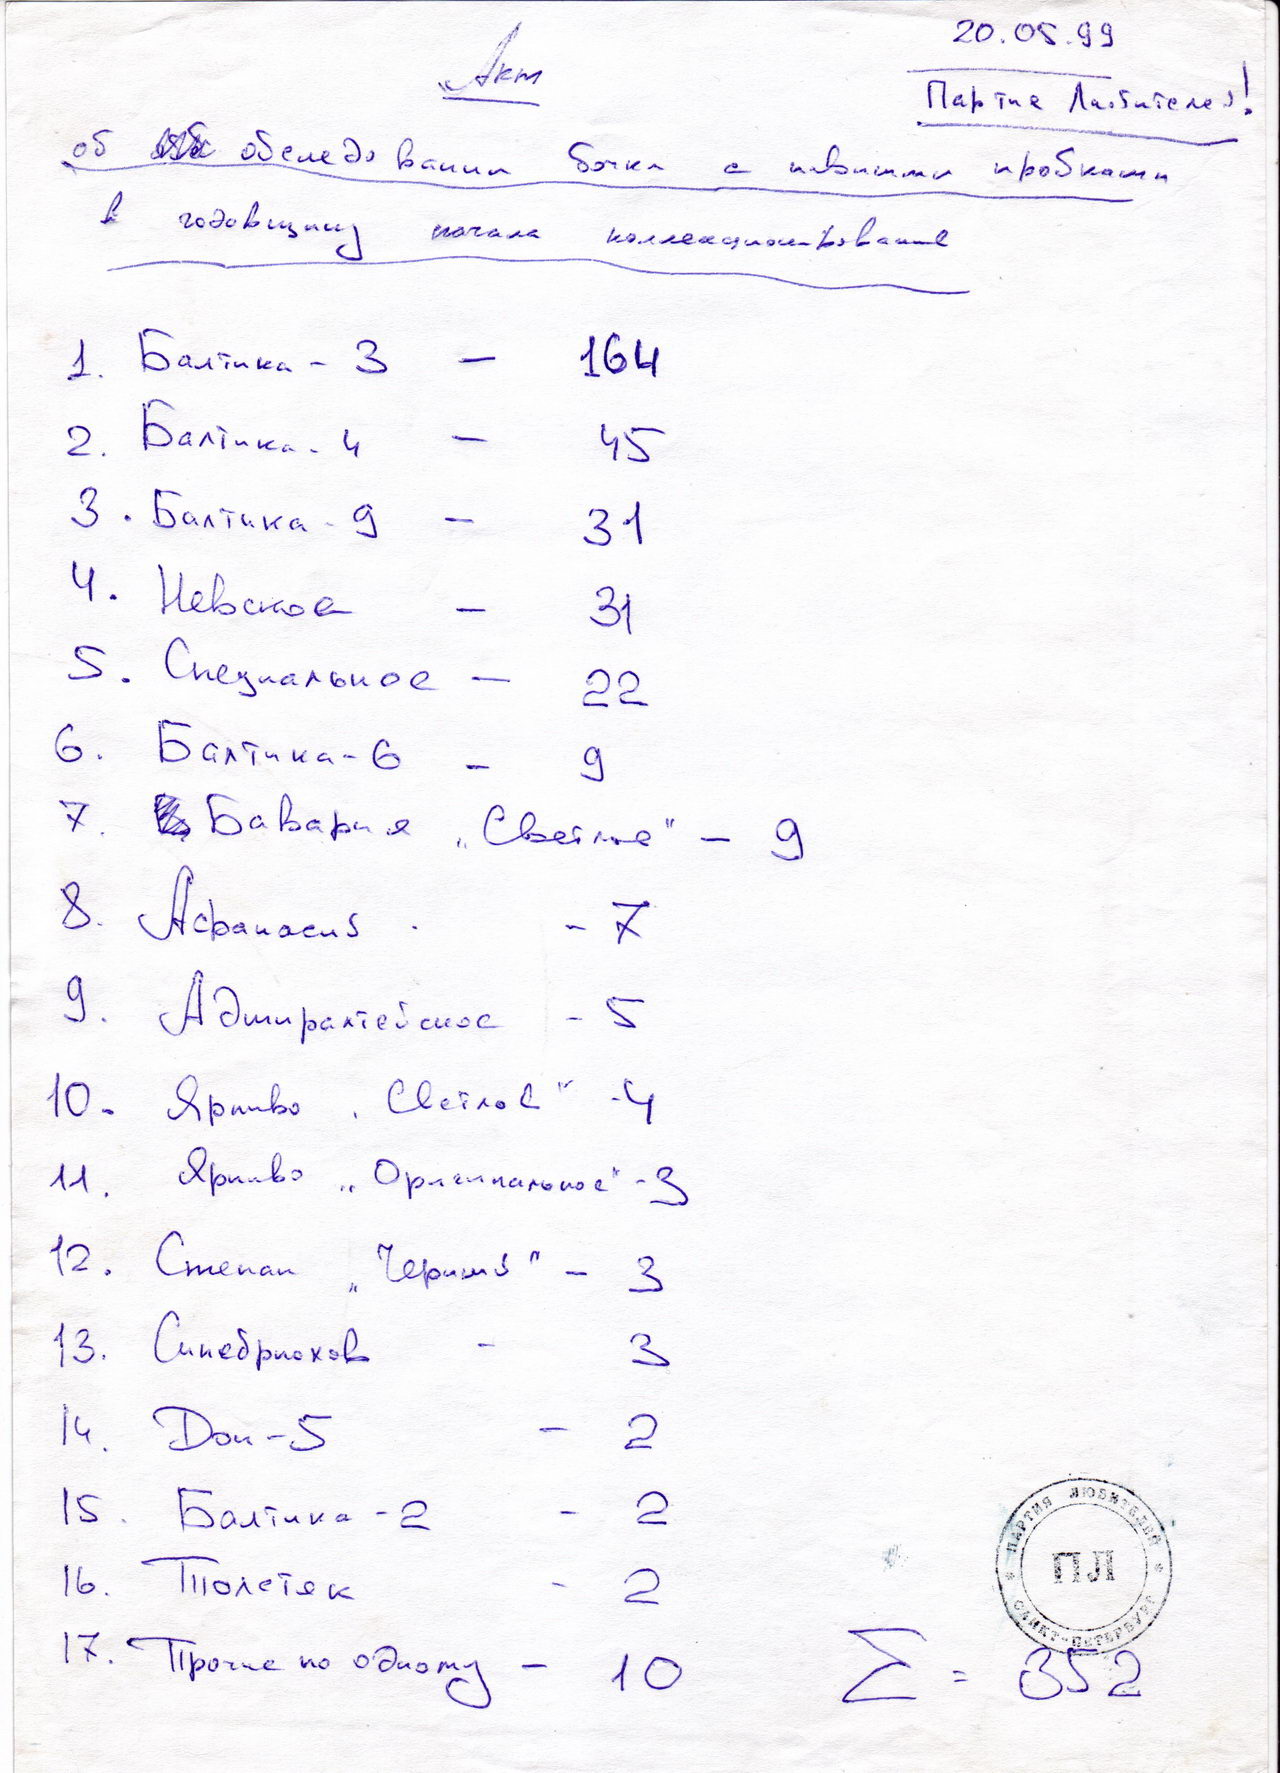 20.05.99
Акт
Партия Любителей!
об обследовании бочки с пивными пробками
в годовщину начала коллекционирования
1. Балтика - 3 - 164
2. Балтика - 4 - 45
3. Балтика - 9 - 31
4. Невское - 31
5. Специальное - 22
6. Балтика - 6 - 9
7. Бавария „Светлое" - 9
8. Афанасий - 7
9. Адмиралтейское - 5
10. Ярпиво „Светлое" - 4
11. Ярпиво „Оригинальное" - 3
12. Степан „Черный" - 3
13. Синебрюхов - 3
14. Дон - 5 - 2
15. Балтика - 2 - 2
16. Толстяк - 2
17. Прочие по одному - 10
Σ = 352
ПАРТИЯ ЛЮБИТЕЛЕЙ
ПЛ
* САНКТ-ПЕТЕРБУРГ *